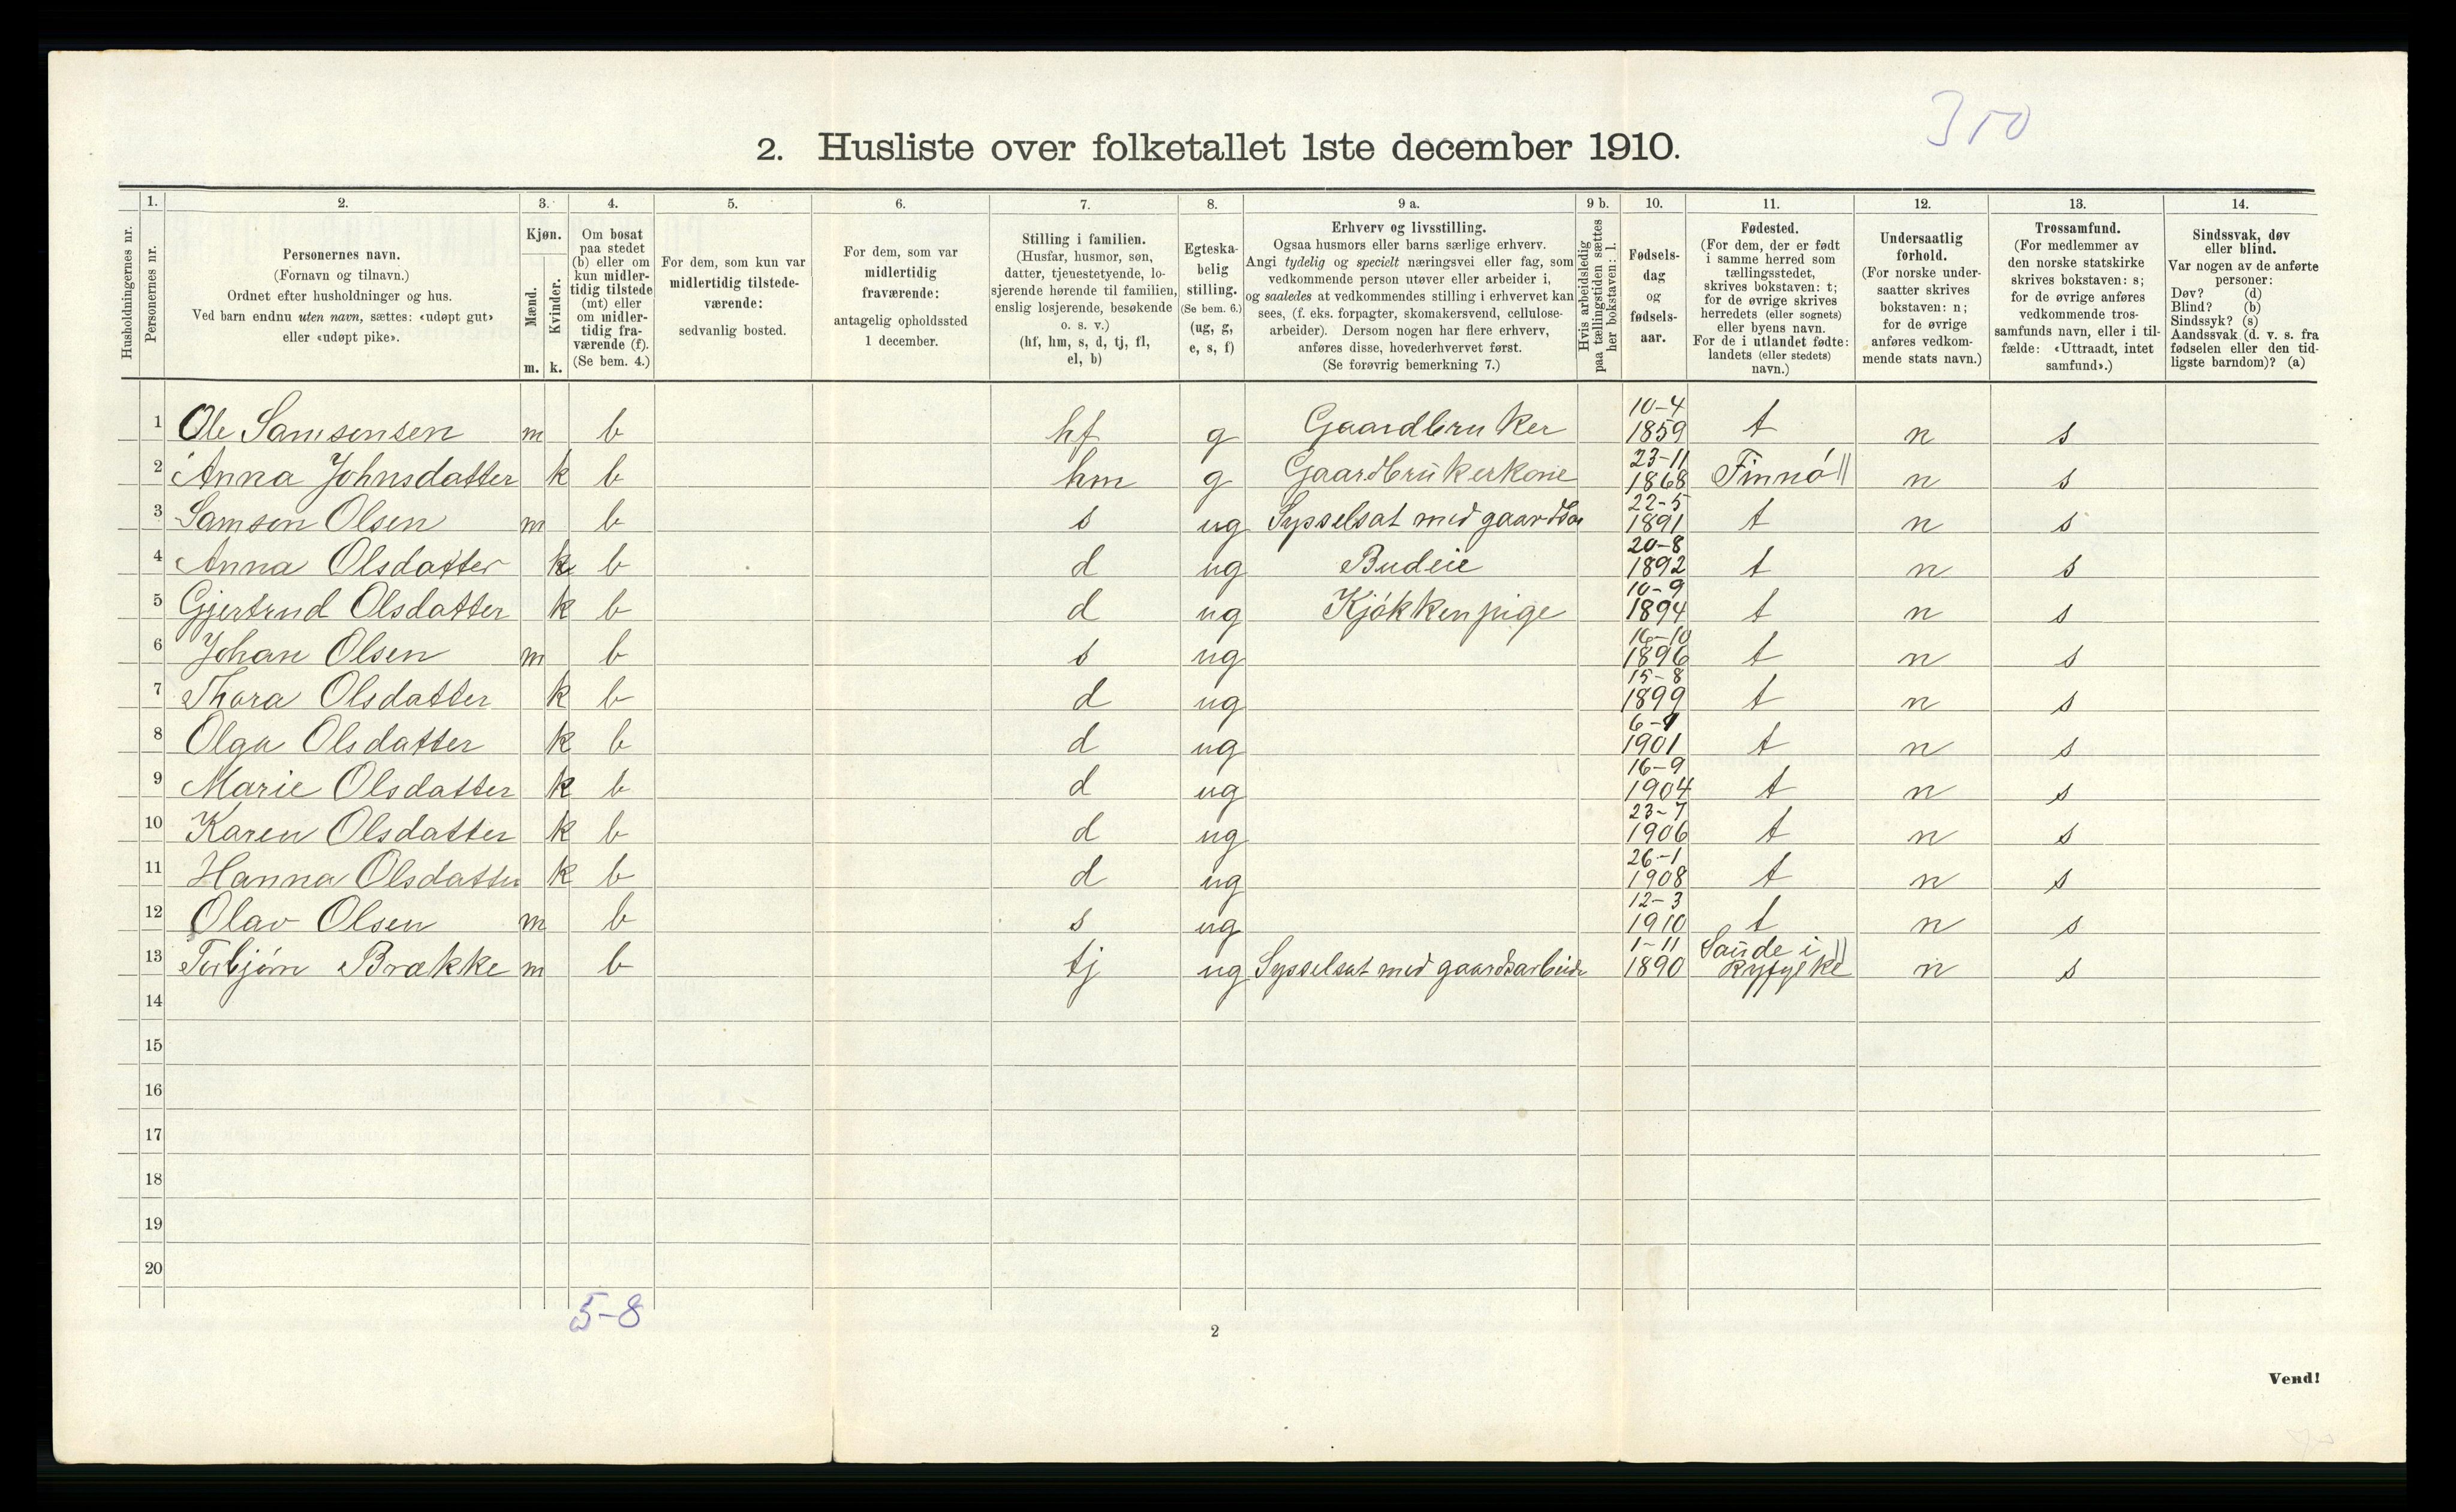 310
2. Husliste over folketallet 1ste december 1910.
Husholdningernes nr.
1.
Personernes nr.
2.
Personernes navn.
(Fornavn og tilnavn.)
Ordnet efter husholdninger og hus.
Ved barn endnu uten navn, sættes: «udøpt gut»
eller «udøpt pike».
3.
Kjøn.
Mænd.
Kvinder.
m. k.
4.
Om bosat
paa stedet
(b) eller om
kun midler-
tidig tilstede
(mt) eller
om midler-
tidig fra-
værende (f).
(Se bem. 4.)
5.
For dem, som kun var
midlertidig tilstede-
værende:
sedvanlig bosted.
6.
For dem, som var
midlertidig
fraværende:
antagelig opholdssted
1 december.
7.
Stilling i familien.
(Husfar, husmor, søn,
datter, tjenestetyende, lo-
sjerende hørende til familien,
enslig losjerende, besøkende
o. s. v.)
(hf, hm, s, d, tj, fl,
el, b)
8.
Egteska-
belig
stilling.
(Se bem. 6.)
(ug, g,
e, s, f)
9 a.
Erhverv og livsstilling.
Ogsaa husmors eller barns særlige erhverv.
Angi tydelig og specielt næringsvei eller fag, som
vedkommende person utøver eller arbeider i,
og saaledes at vedkommendes stilling i erhvervet kan
sees, (f. eks. forpagter, skomakersvend, cellulose-
arbeider). Dersom nogen har flere erhverv,
anføres disse, hovederhvervet først.
(Se forøvrig bemerkning 7.)
9 b.
Hvis arbeidsledig
paa tællingstiden sættes
her bokstaven: l.
10.
Fødsels-
dag
og
fødsels-
aar.
11.
Fødested.
(For dem, der er født
i samme herred som
tællingsstedet,
skrives bokstaven: t;
for de øvrige skrives
herredets (eller sognets)
eller byens navn.
For de i utlandet fødte:
landets (eller stedets)
navn.)
12.
Undersaatlig
forhold.
(For norske under-
saatter skrives
bokstaven: n;
for de øvrige
anføres vedkom-
mende stats navn.)
13.
Trossamfund.
(For medlemmer av
den norske statskirke
skrives bokstaven: s;
for de øvrige anføres
vedkommende tros-
samfunds navn, eller i til-
fælde: «Uttraadt, intet
samfund».)
14.
Sindssvak, døv
eller blind.
Var nogen av de anførte
personer:
Døv? (d)
Blind? (b)
Sindssyk? (s)
Aandssvak (d. v. s. fra
fødselen eller den tid-
ligste barndom)? (a)
1 Ole Samsonsen m b hf g Gaardbruker 10-4 1859 t n s
2 Anna Johnsdatter k b hm g Gaardbrukerkone 23-11 1868 Finnö n s
3 Samson Olsen m b s ug Sysselsat med 22-5 1891 t n s
4 Anna Olsdatter k b d ug Budeie 20-8 1892 t n s
5 Gjertrud Olsdatter k b d ug Kjøkkenpige 10-9 1894 t n s
6 Johan Olsen m b s ug 16-10 1896 t n s
7 Thora Olsdatter k b d ug 15-8 1899 t n s
8 Olga Olsdatter k b d ug 1901 t n s
9 Marie Olsdatter k b d ug 16-9 1904 t n s
10 Karen Olsdatter k b d ug 23-7 1906 t n s
11 Hanna Olsdatter k b d ug 26-1 1908 t n s
12 Olav Olsen m b s ug 12-3 1910 t n s
13 Torbjørn Brække m b tj ug Sysselsat med gaardsarbeide 1-11 1890 Sande i Ryfylke n s
14
15
16
17
18
19
20
5-8
2
Vend!